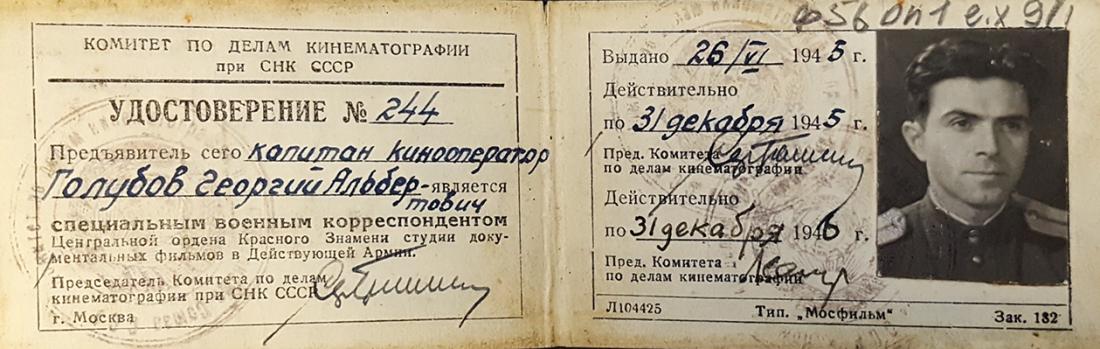 КОМИТЕТ ПО ДЕЛАМ КИНЕМАТОГРАФИИ
при СНК СССР
УДОСТОВЕРЕНИЕ № 244
Предъявитель сего капитан кинооператор
Голубов Георгий Альбер-
тович является
специальным военным корреспондентом
Центральной ордена Красного Знамени студии доку-
ментальных фильмов в Действующей Армии.
Председатель Комитета по делам
кинематографии при СНК СССР
г. Москва
ф56 оп1 е.х 9/1
Выдано 26/VI 1945 г.
Действительно
по 31 декабря 1945 г.
Пред. Комитета
по делам кинематографии
Действительно
по 31 декабря 1946 г.
Пред. Комитета
по делам кинематографии
Л104425 Тип. „Мосфильм" Зак. 132